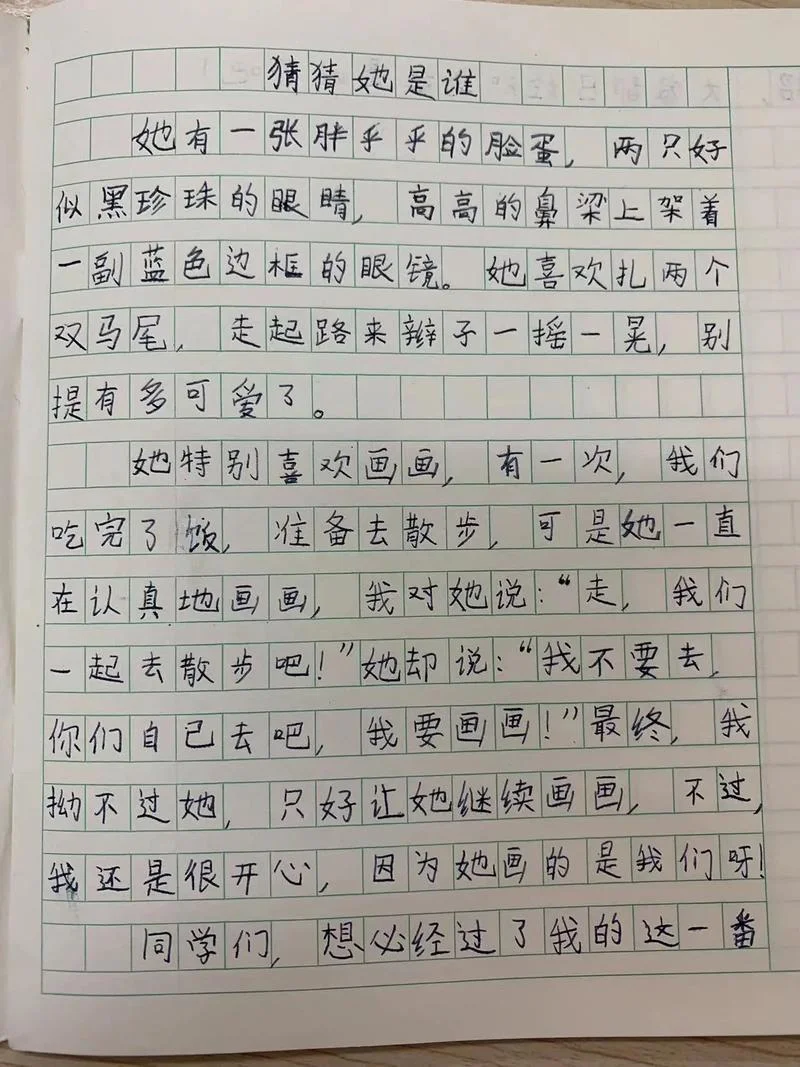 猜猜她是谁
她有一张胖乎乎的脸蛋，两只好
似黑珍珠的眼睛，高高的鼻梁上架着
一副蓝色边框的眼镜。她喜欢扎两个
双马尾，走起路来辫子一摇一晃，别
提有多可爱了。
她特别喜欢画画，有一次，我们
吃完了饭，准备去散步，可是她一直
在认真地画画，我对她说：“走，我们
一起去散步吧！”她却说：“我不要去，
你们自己去吧，我要画画！”最终，我
拗不过她，只好让她继续画画，不过，
我还是很开心，因为她画的是我们呀！
同学们，想必经过了我的这一番